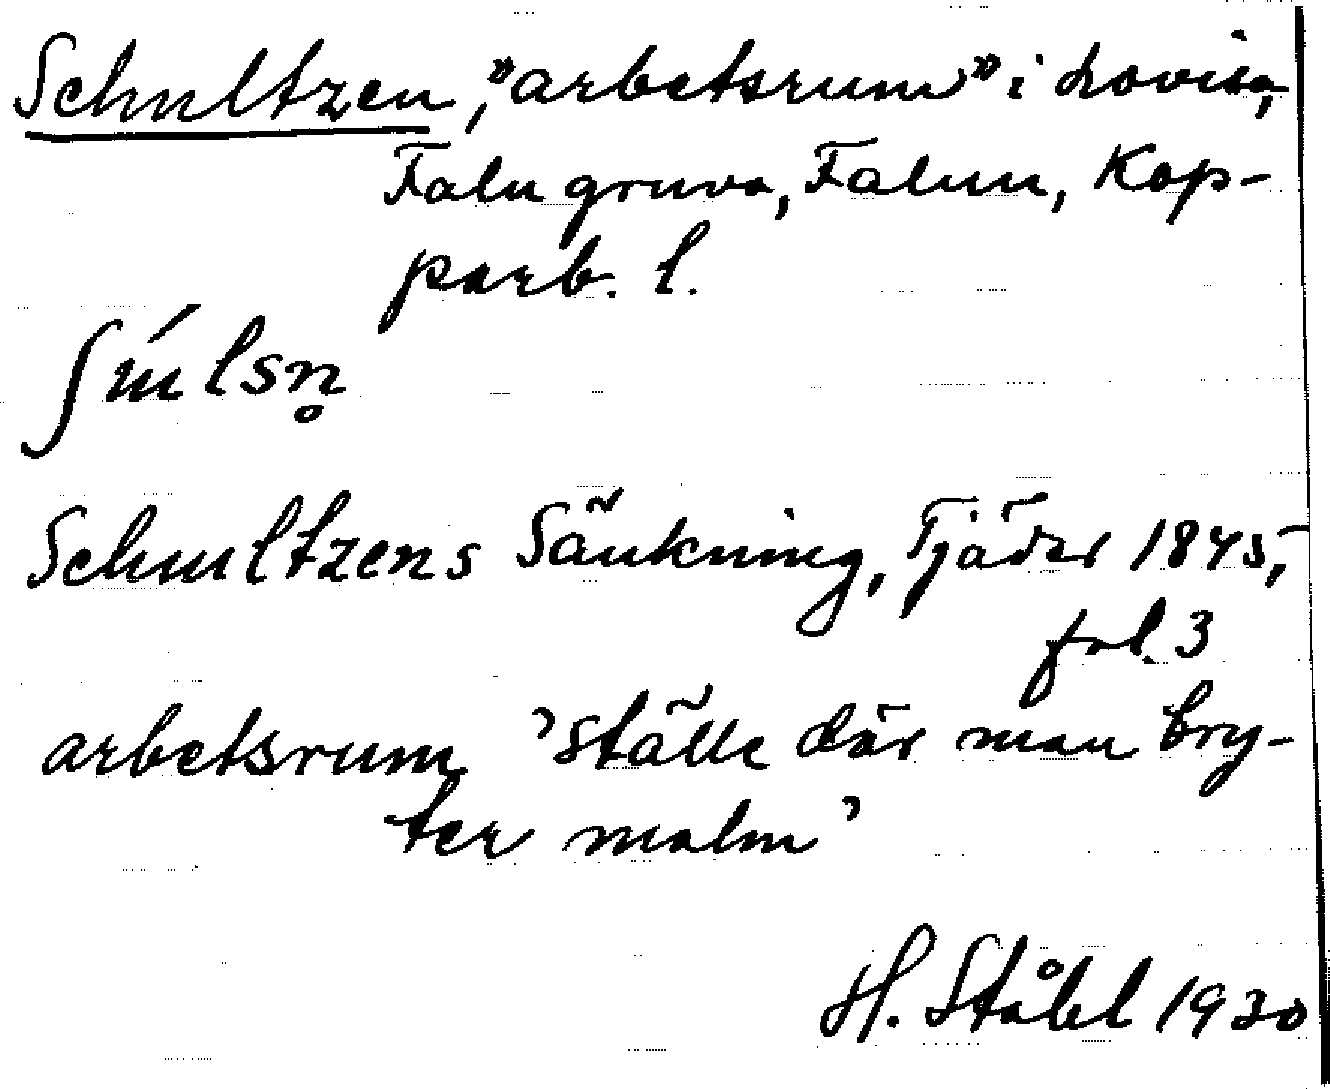 Schultzen, "arbetsrum" i Lovisa,
Falu gruva, Falun, Kop-
parb. l.
ʃɯ́lsn̥
Schultzens Sänkning, Tjäder 1845,
fol. 3
arbetsrum 'ställe där man bry-
ter malm'
H. Ståhl 1930